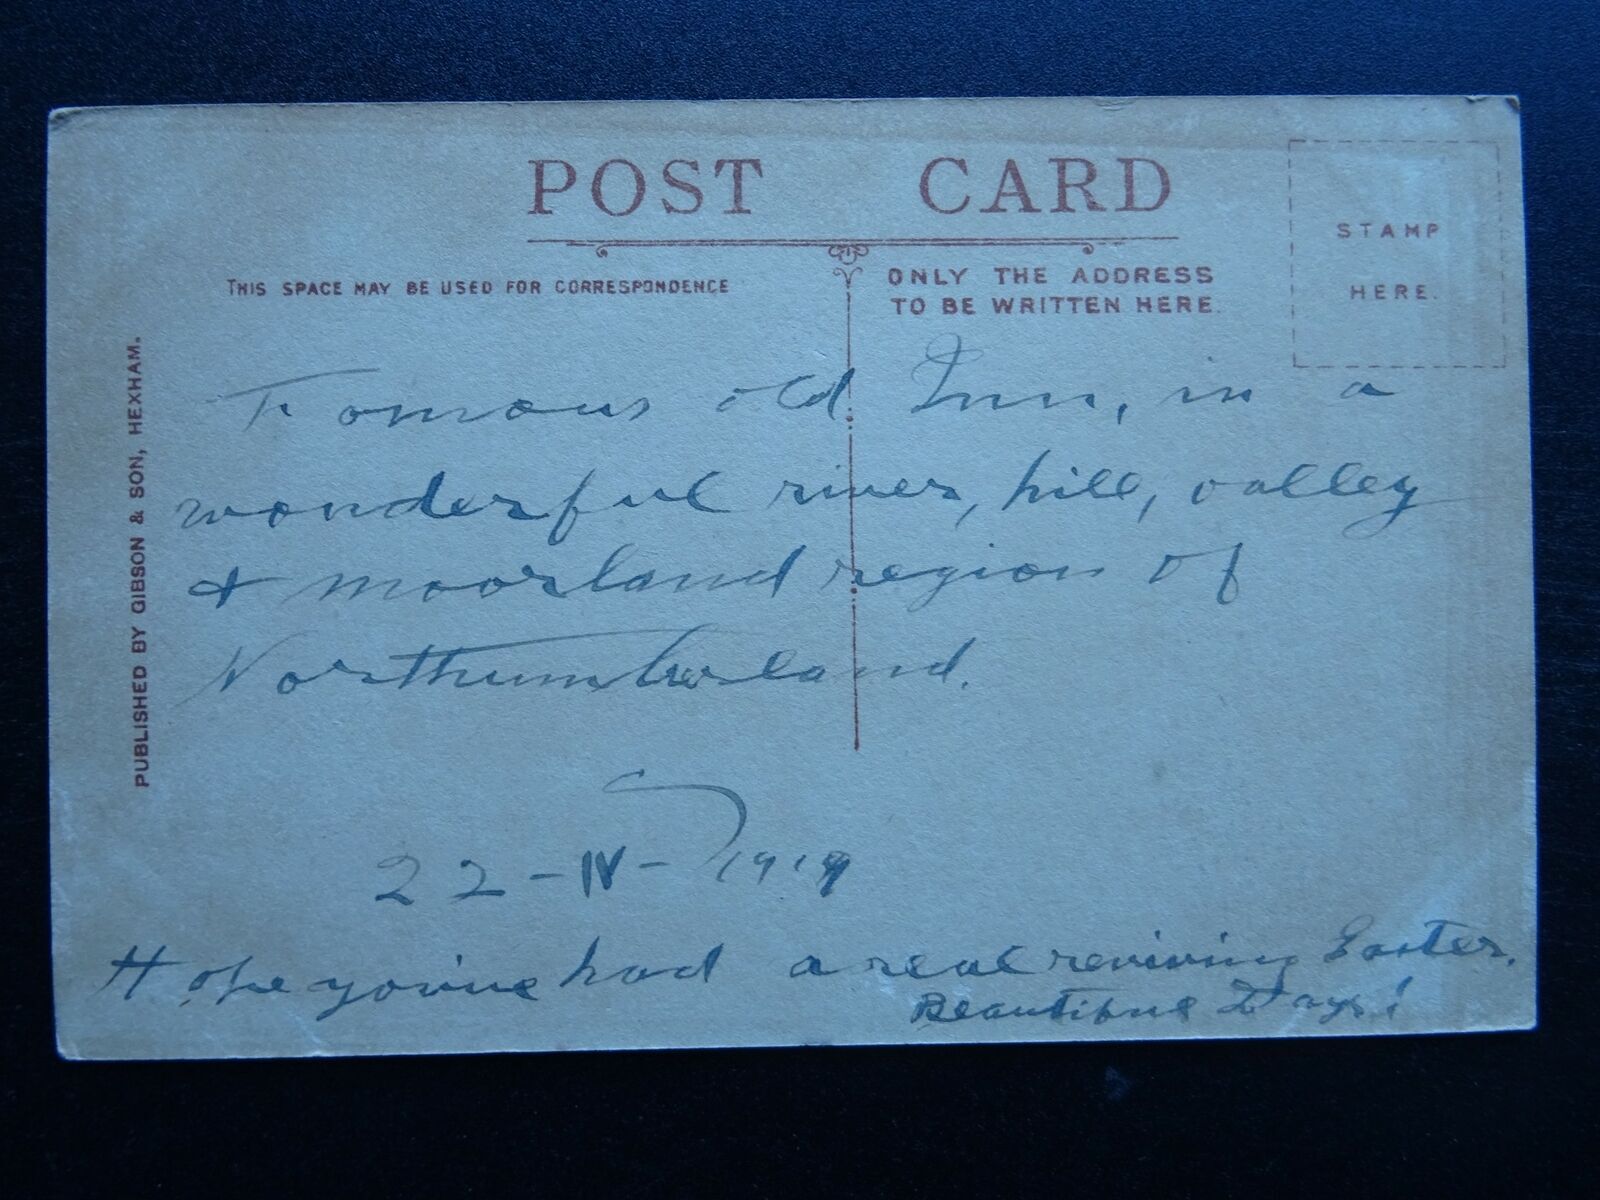 POST CARD
THIS SPACE MAY BE USED FOR CORRESPONDENCE
ONLY THE ADDRESS
TO BE WRITTEN HERE.
STAMP
HERE.
PUBLISHED BY GIBSON & SON, HEXHAM.
Famous old Inn, in a
wonderful river, hill, valley
& moorland region of
Northumberland.
22-IV-1919
Hope you've had a real reviving Easter.
Beautiful Days!